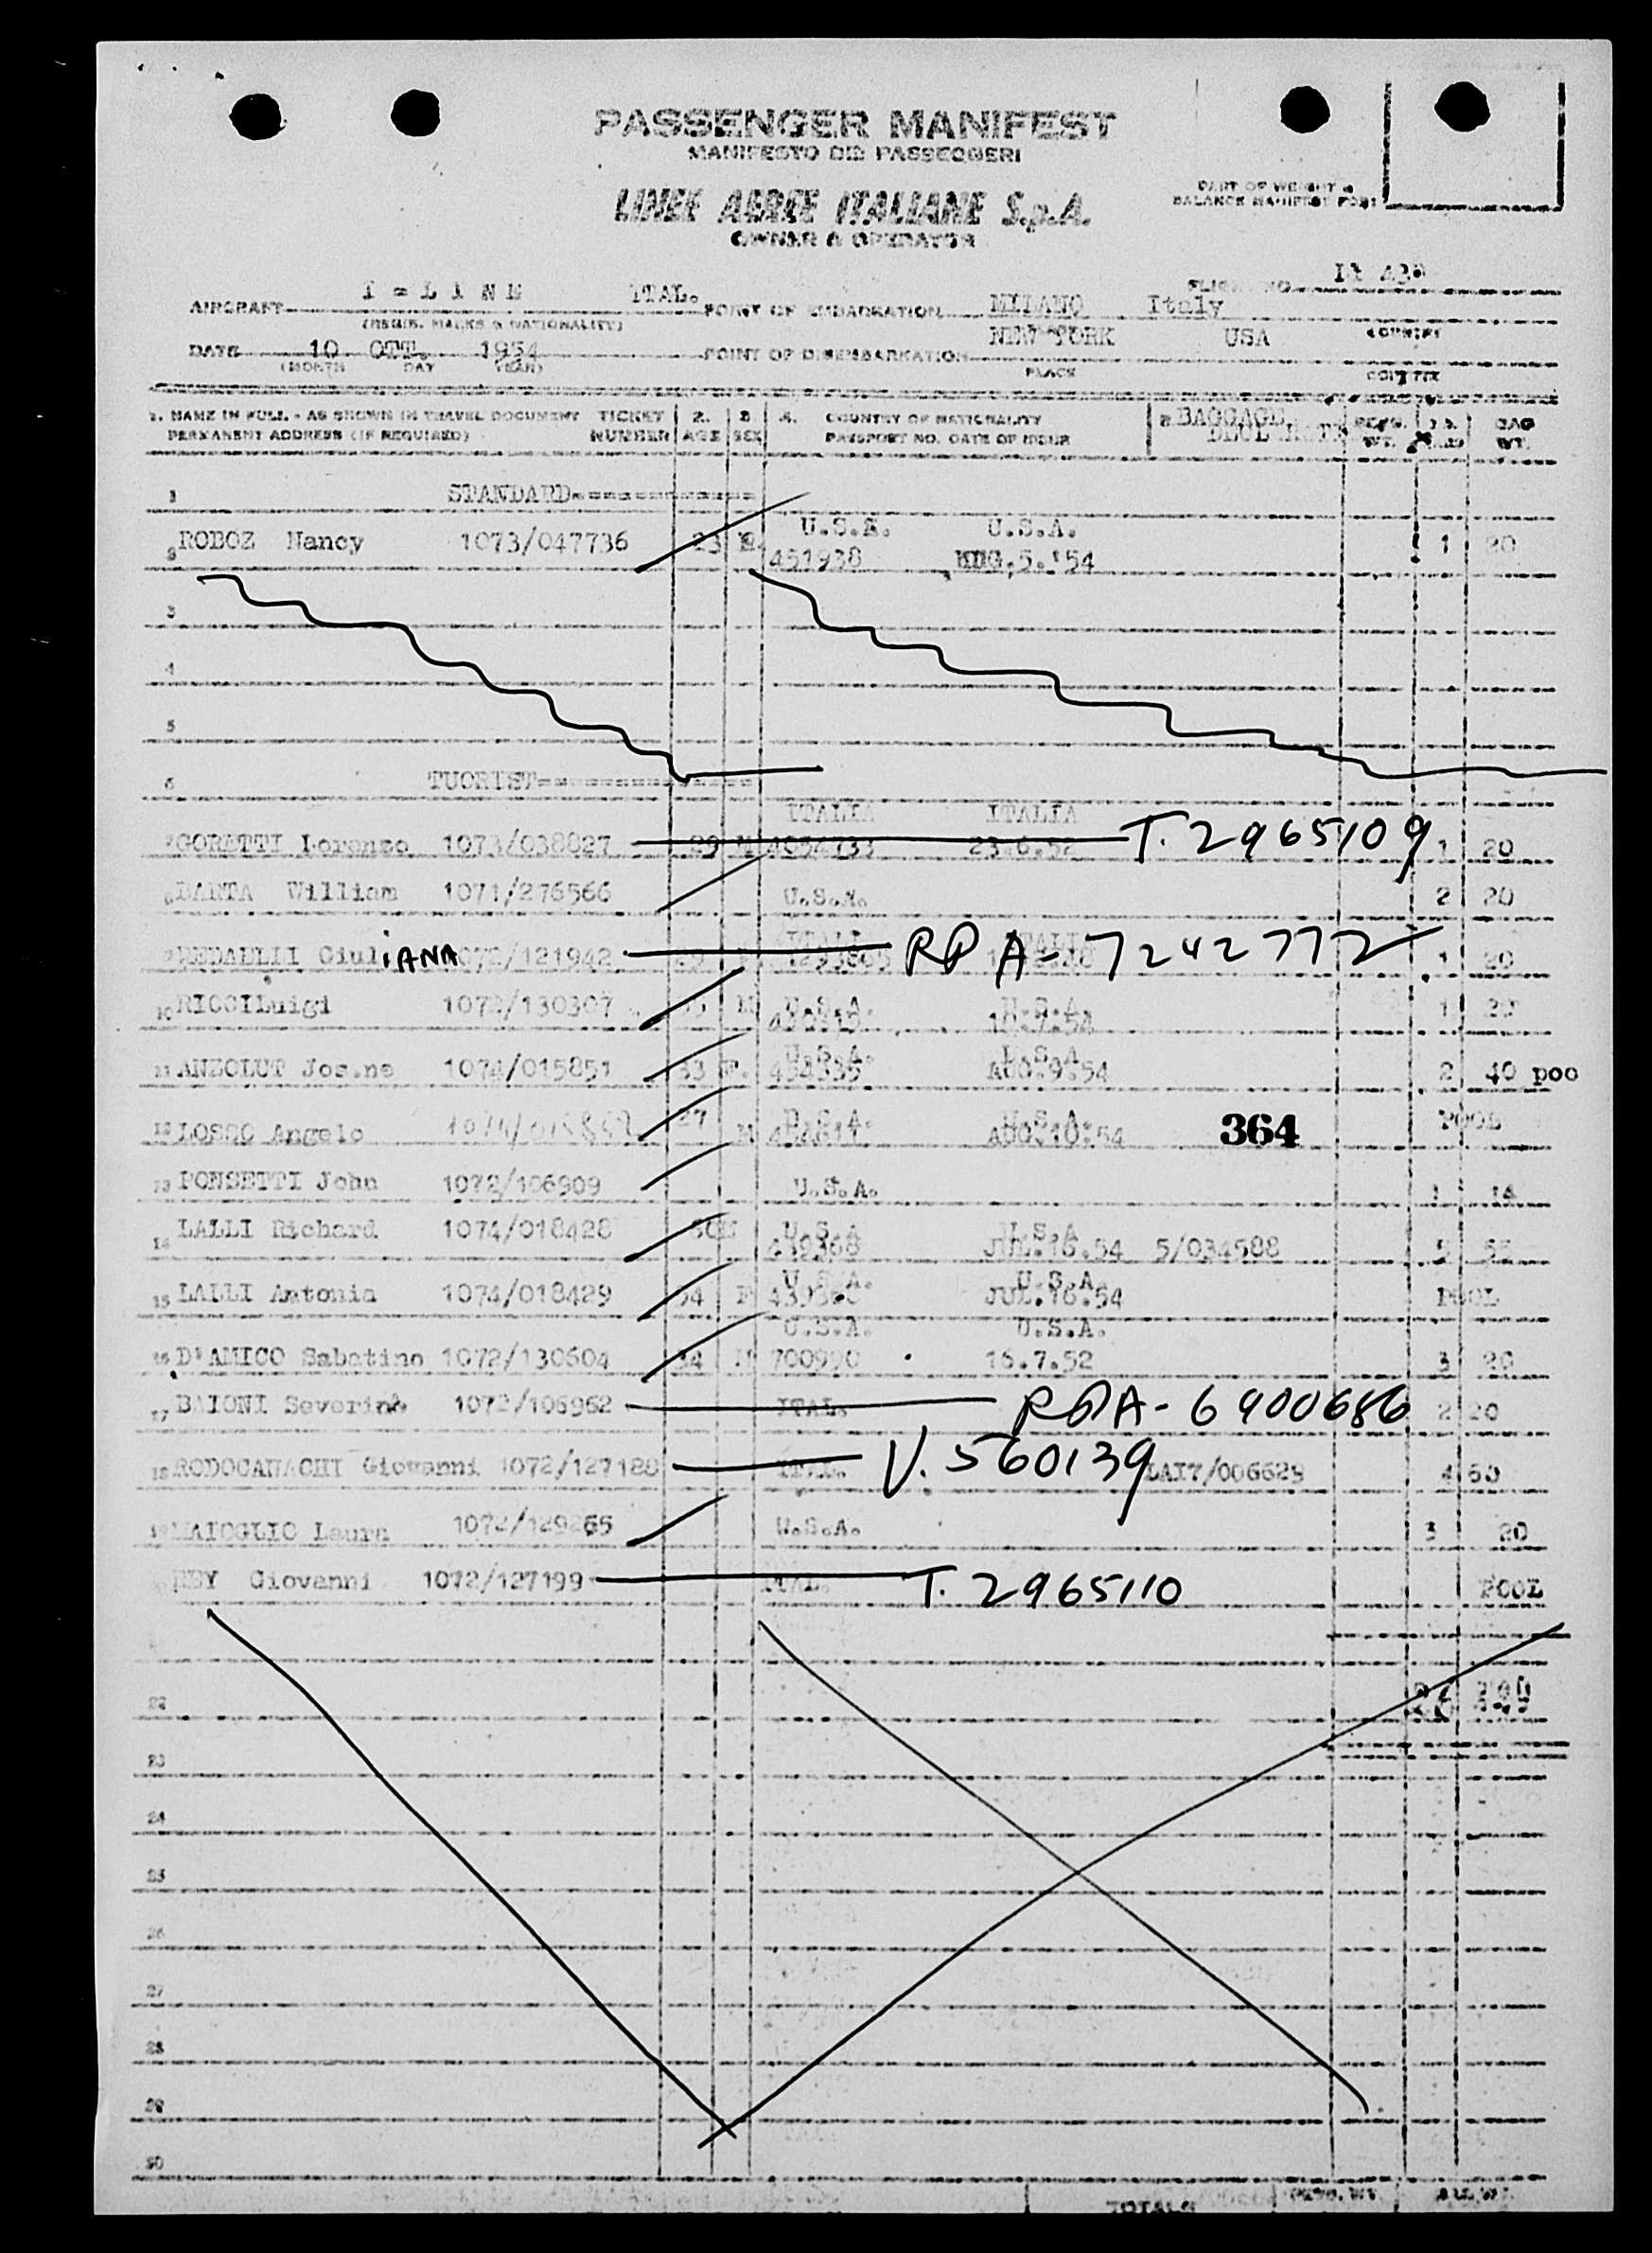 PASSENGER MANIFEST
MANIFESTO DEI PASSEGGERI
LINEE AEREE ITALIANE S.p.A.
OWNER & OPERATOR
PART OF WEIGHT &
BALANCE MANIFEST FORM
FLIGHT NO.
AIRCRAFT I - L I N E ITAL. POINT OF EMBARKATION MILANO Italy
(REGIS. MARKS & NATIONALITY) COUNTRY
DATE 10 OTT. 1954 POINT OF DISEMBARKATION NEW YORK USA
(MONTH DAY YEAR) PLACE COUNTRY
1. NAME IN FULL - AS SHOWN IN TRAVEL DOCUMENT TICKET 2. 3 4. COUNTRY OF NATIONALITY BAGGAGE BAG
PERMANENT ADDRESS (IF REQUIRED) NUMBER AGE SEX PASSPORT NO. DATE OF ISSUE WT. WT.
1 STANDARD
U.S.A. U.S.A.
ROBOZ Nancy 1073/047736 23 451938 AUG.5.'54 1 20
3
4
5
6 TUORIST
ITALIA ITALIA
GORETTI Lorenzo 1073/038827 29 M 4054733 23.6.52 T. 2965109 1 20
William 1071/276566 U.S.A. 2 20
Giuliana 1072/121942 29 RPA- 7242772 1 20
10 RICCILuigi 1072/130307 M U.S.A. U.S.A. 1 20
11 ANZOLUT Jos.ne 1074/015851 33 F. U.S.A. 454335 U.S.A. AUG.9.54 2 40 poo
12 LOSSO Angelo 27 M U.S.A. U.S.A. AUG.10.54 364 POOL
13 PONSETTI John 1072/106909 U.S.A. 1 14
14 LALLI Richard 1074/018428 U.S.A 439368 U.S.A JUL.16.54 5/034588
15 LALLI Antonia 1074/018429 34 F U.S.A. U.S.A. JUL.16.54 POOL
U.S.A. U.S.A.
16 D'AMICO Sabatino 1072/130604 34 M 700990 16.7.52 3 20
17 BAIONI Severina 1072/106962 ITAL. RPA- 6900686 2 20
18 RODOCANACHI Giovanni 1072/127188 ITAL. V. 560139 LAI7/006629 4 60
MAIOGLIO Laura 1072/129265 U.S.A. 3 20
Giovanni 1072/127199 ITAL. T. 2965110 POOL
22
23
24
25
26
27
28
29
30
TOTALS